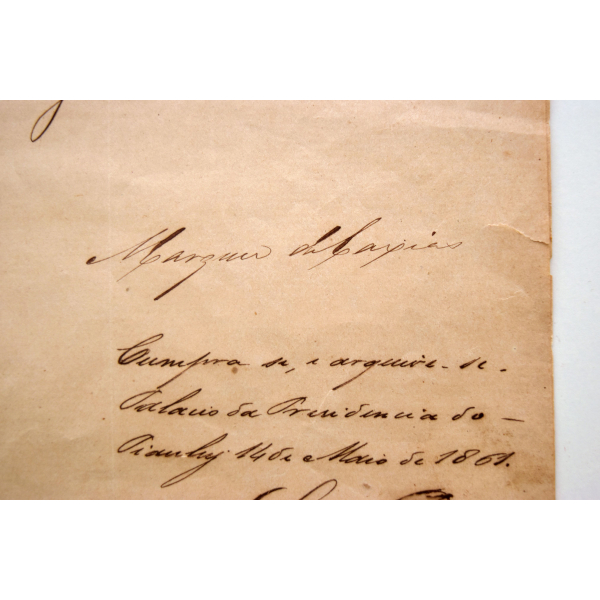 Marquez de Caxias
Cumpra se, e archive-se.
Palacio da Presidencia do -
Piauhy 14 de Maio de 1861.